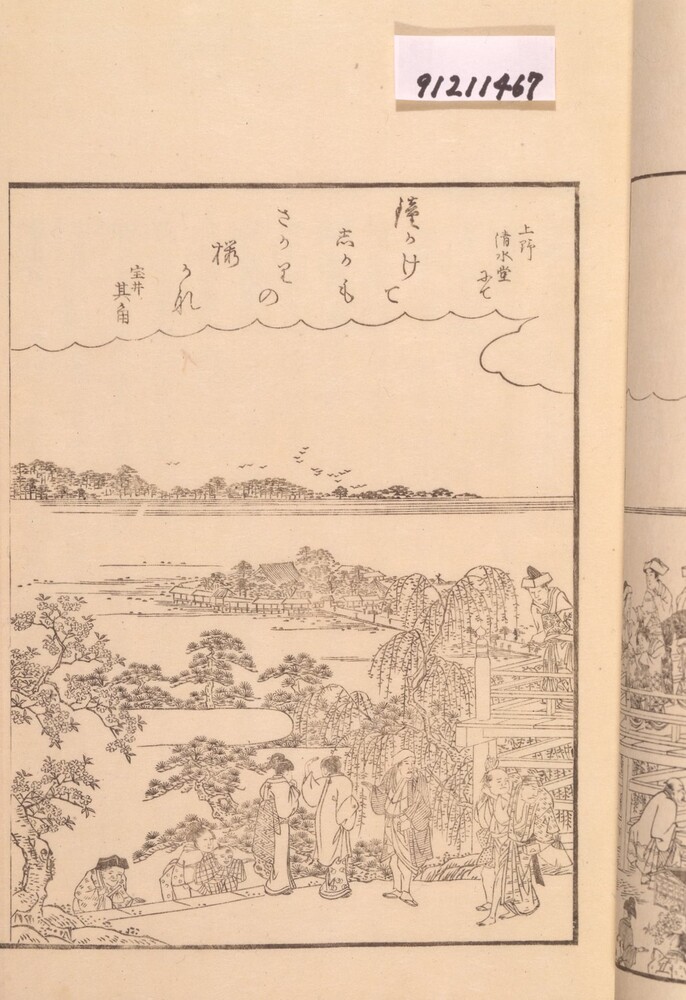 91211467
上野
清水堂
にて
鐘かけて
志かも
さかりの
櫻
かな
宝井
其角